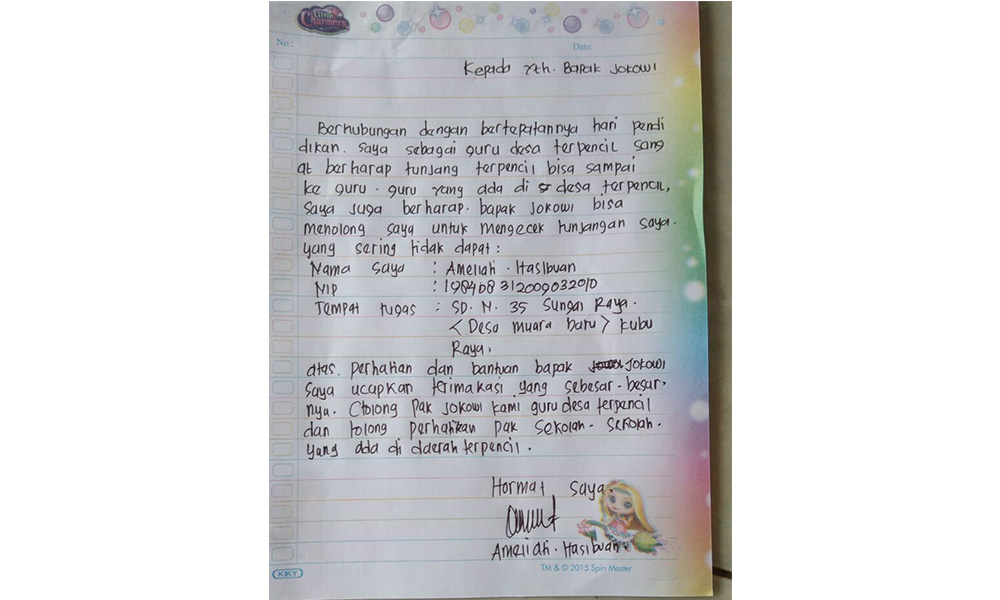 Charmers
No.:
Date:
Kepada Yth. Bapak Jokowi
Berhubungan dengan bertepatannya hari pendi
dikan. Saya sebagai guru desa terpencil sang
at berharap tunjang terpencil bisa sampai
ke guru. guru yang ada di desa terpencil,
Saya juga berharap. bapak Jokowi bisa
menolong saya untuk mengecek tunjangan saya.
yang sering tidak dapat :
Nama saya : Ameliah. Hasibuan
NIP :
Tempat tugas : SD. N. 35 Sungai Raya.
<Desa muara baru> kubu
Raya,
atas. perhatian dan bantuan bapak Jokowi
Saya ucapkan terimakasi yang sebesar-besar.
nya. (tolong pak Jokowi kami guru desa terpencil
dan tolong perhatikan pak sekolah-sekolah.
yang ada di daerah terpencil.
Hormat saya,
Ameliah. Hasibuan.
KIKY
TM & © 2015 Spin Master